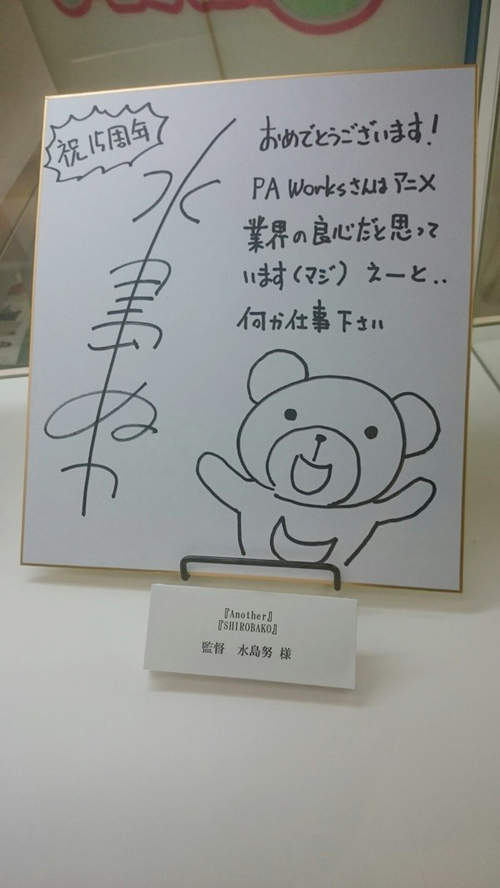 祝15周年
水島努
おめでとうございます!
PA Worksさんはアニメ
業界の良心だと思って
います(マジ) えーと..
何か仕事下さい
『Another』
『SHIROBAKO』
監督 水島努 様